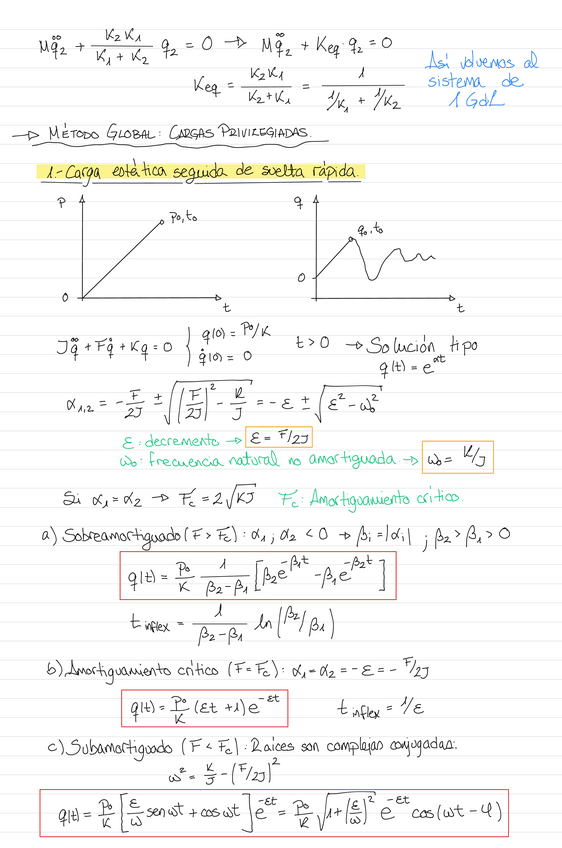 Mq̈₂ + K₂K₁/(K₁ + K₂) q₂ = 0 → Mq̈₂ + Keq · q₂ = 0
Keq = K₂K₁/(K₂+K₁) = 1/(1/K₁ + 1/K₂)
Así volvemos al
sistema de
1 GdL
→ MÉTODO GLOBAL: CARGAS PRIVILEGIADAS.
1- Carga estática seguida de suelta rápida.
P
p₀, t₀
0
t
q
q₀, t₀
0
t
Jq̈ + Fq̇ + Kq = 0 { q(0) = P₀/K
q̇(0) = 0
t > 0 → Solución tipo
q(t) = e^αt
α₁,₂ = -F/2J ± √((F/2J)² - K/J) = -ε ± √(ε² - ω₀²)
ε: decremento → ε = F/2J
ω₀: frecuencia natural no amortiguada → ω₀ = K/J
Si α₁ = α₂ → Fc = 2√KJ Fc: Amortiguamiento crítico.
a) Sobreamortiguado (F > Fc): α₁ ; α₂ < 0 → βi = |αi| ; β₂ > β₁ > 0
q(t) = P₀/K 1/(β₂-β₁) [β₂e^-β₁t - β₁e^-β₂t]
t inflex = 1/(β₂-β₁) ln(β₂/β₁)
b) Amortiguamiento crítico (F = Fc): α₁ = α₂ = -ε = - F/2J
q(t) = P₀/K (εt + 1) e^-εt t inflex = 1/ε
c) Subamortiguado (F < Fc): Raíces son complejas conjugadas:
ω² = K/J - (F/2J)²
q(t) = P₀/K [ε/ω sen ωt + cos ωt] e^-εt = P₀/K √(1+(ε/ω)²) e^-εt cos(ωt - φ)